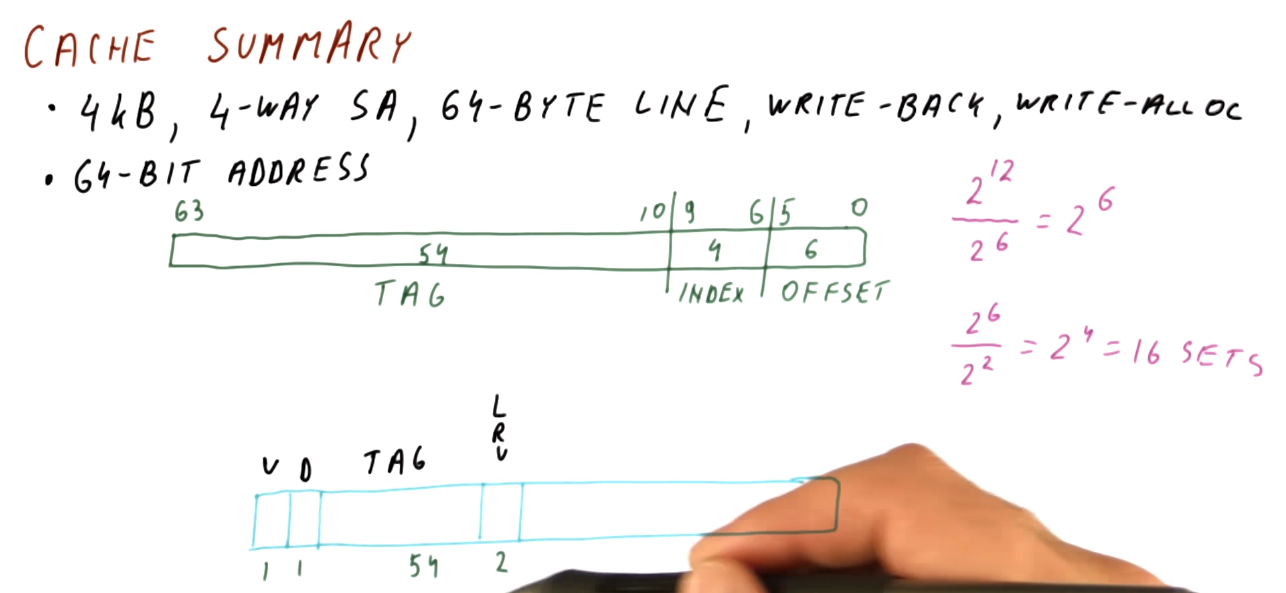 CACHE SUMMARY
• 4kB, 4-WAY SA, 64-BYTE LINE, WRITE-BACK, WRITE-ALLOC
• 64-BIT ADDRESS
63 10 9 6 5 0
54 4 6
TAG INDEX OFFSET
2^12 / 2^6 = 2^6
2^6 / 2^2 = 2^4 = 16 SETS
V D TAG LRU
1 1 54 2